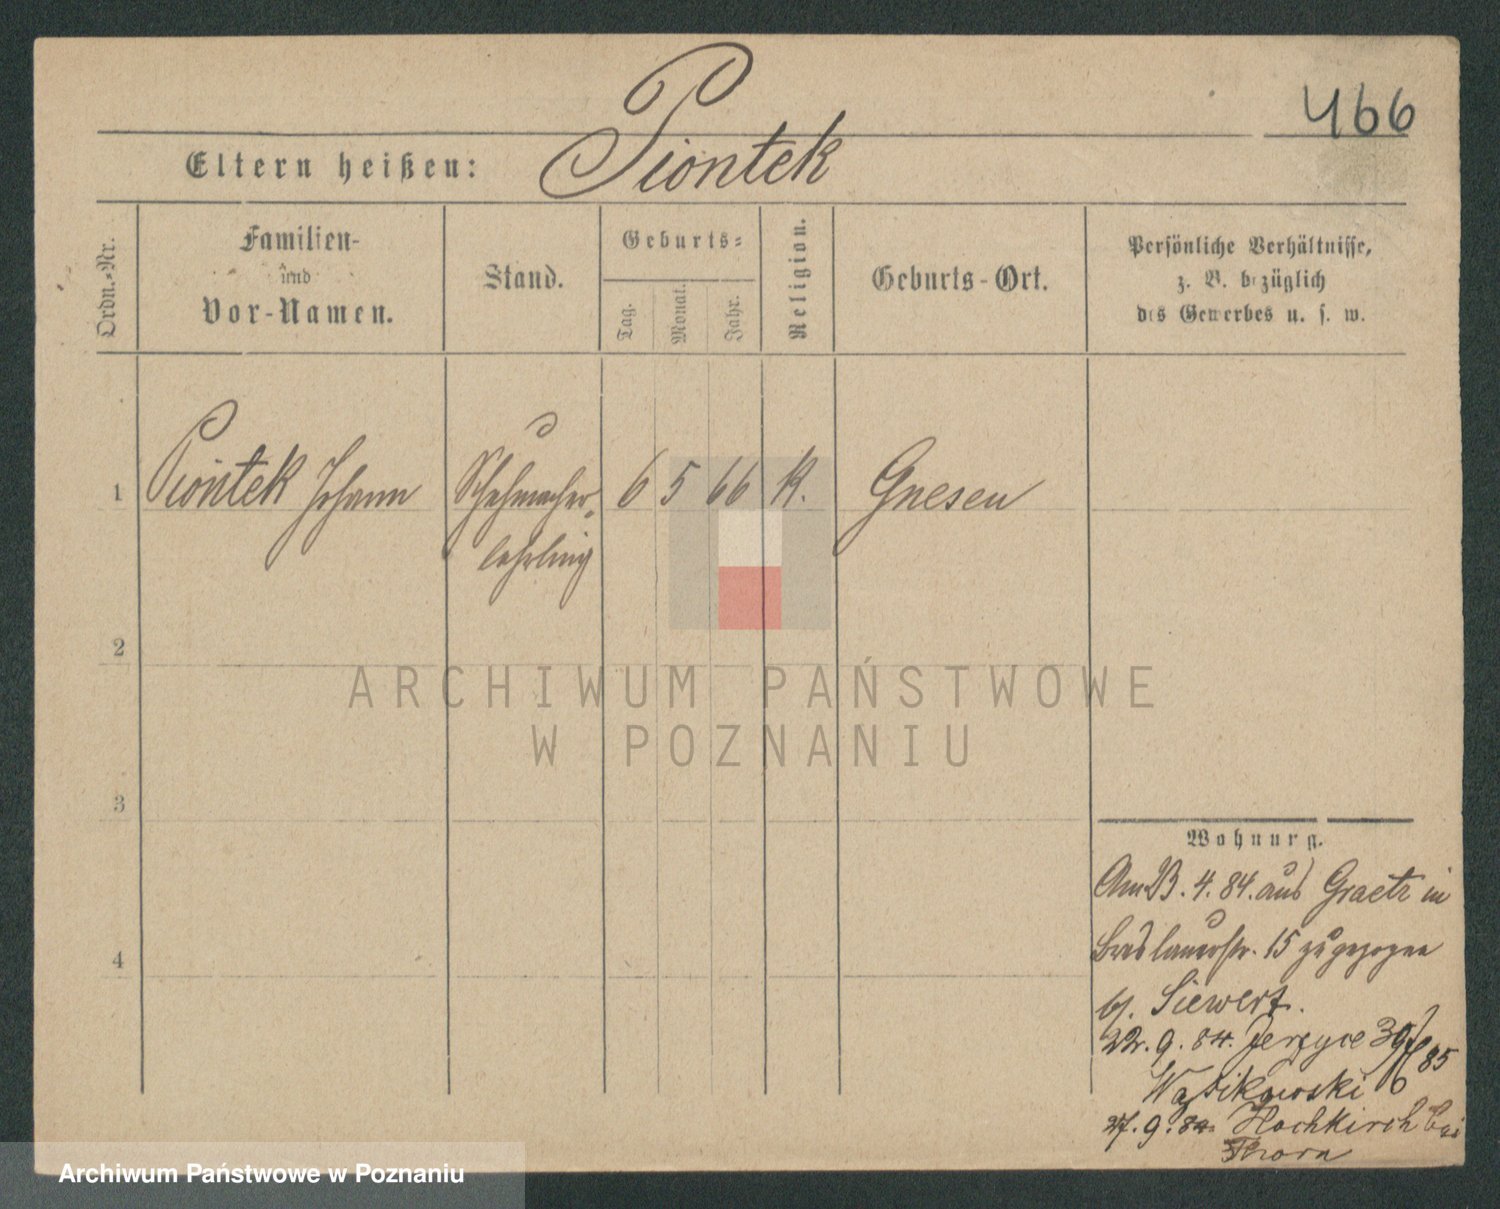 466
Piontek
Eltern heißen:
Ordn.-Nr.
Familien-
und
Vor-Namen.
Stand.
Geburts-
Tag.
Monat.
Jahr.
Religion.
Geburts-Ort.
Persönliche Verhältnisse,
z. B. bezüglich
des Gewerbes u. s. w.
1 Piontek Johann Schuhmacher-
lehrling 6 5 66 k. Gnesen
2
3
4
Wohnung.
Am 23. 4. 84. aus Graetz in
Breslauerstr. 15 zugezogen
bj. Siewert.
22. 9. 84. Jerzyce 39
85
27. 9. 84 Hochkirch bei
Thorn
ARCHIWUM PAŃSTWOWE
W POZNANIU
Archiwum Państwowe w Poznaniu